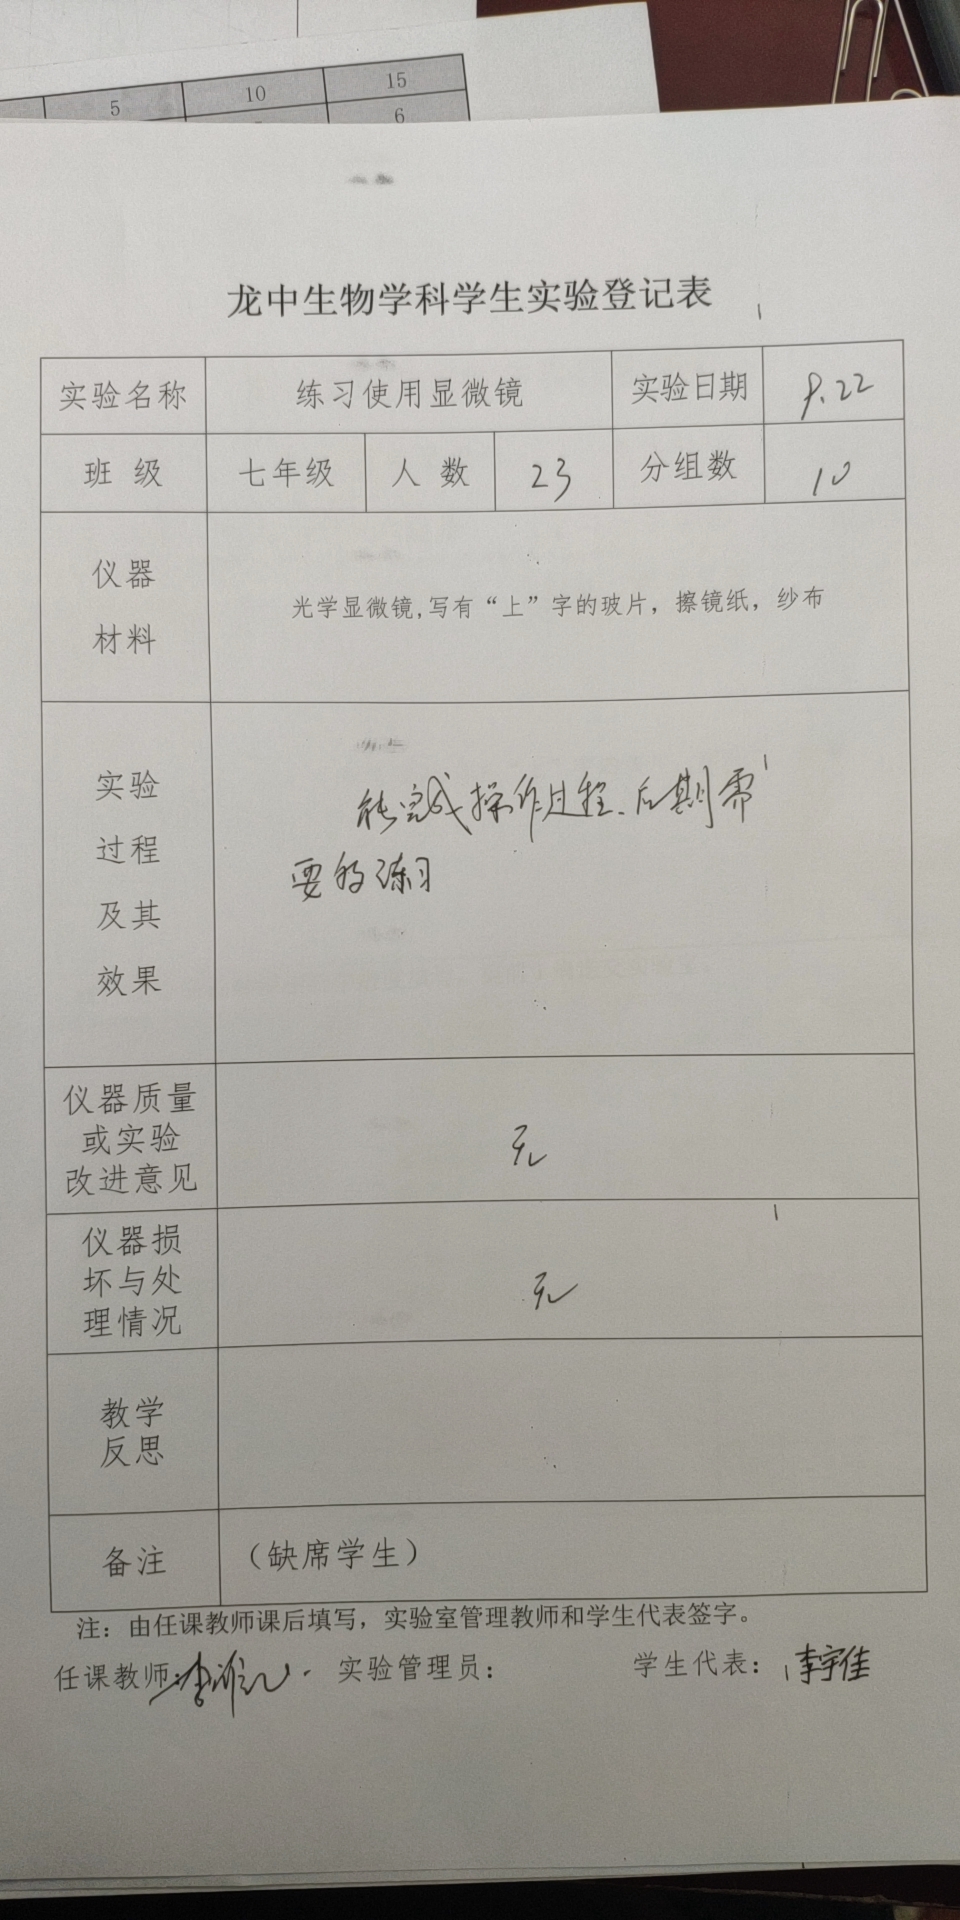 5 10 15
6
龙中生物学科学生实验登记表
实验名称 练习使用显微镜 实验日期 9.22
班 级 七年级 人 数 23 分组数 10
仪器
材料
光学显微镜,写有“上”字的玻片，擦镜纸，纱布
实验
过程
及其
效果
能完成操作过程.后期需
要多练习
仪器质量
或实验
改进意见
无
仪器损
坏与处
理情况
无
教学
反思
备注 （缺席学生）
注：由任课教师课后填写，实验室管理教师和学生代表签字。
任课教师: 李 实验管理员： 学生代表：李宇佳